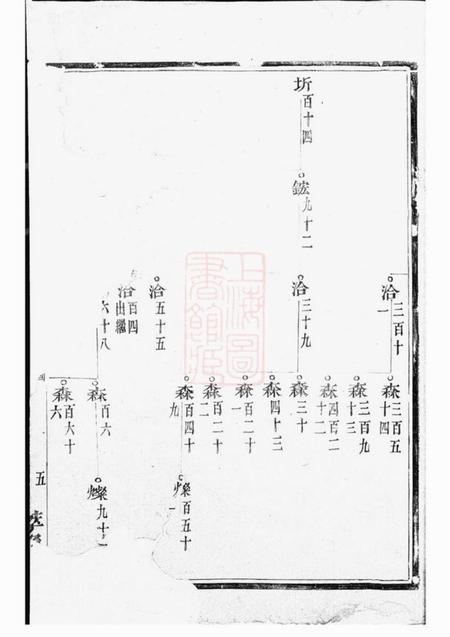 圻百十四
鋐九十二
洽三百十一
洽三十九
洽五十五
洽百四
出繼
六十八
森三百五十四
森三百九十三
森四百二十二
森三十
森四十三
森百二十一
森百二十二
森百四十九
森百六
森百六十六
燦百五十一
燦九十
五
上海圖書館藏